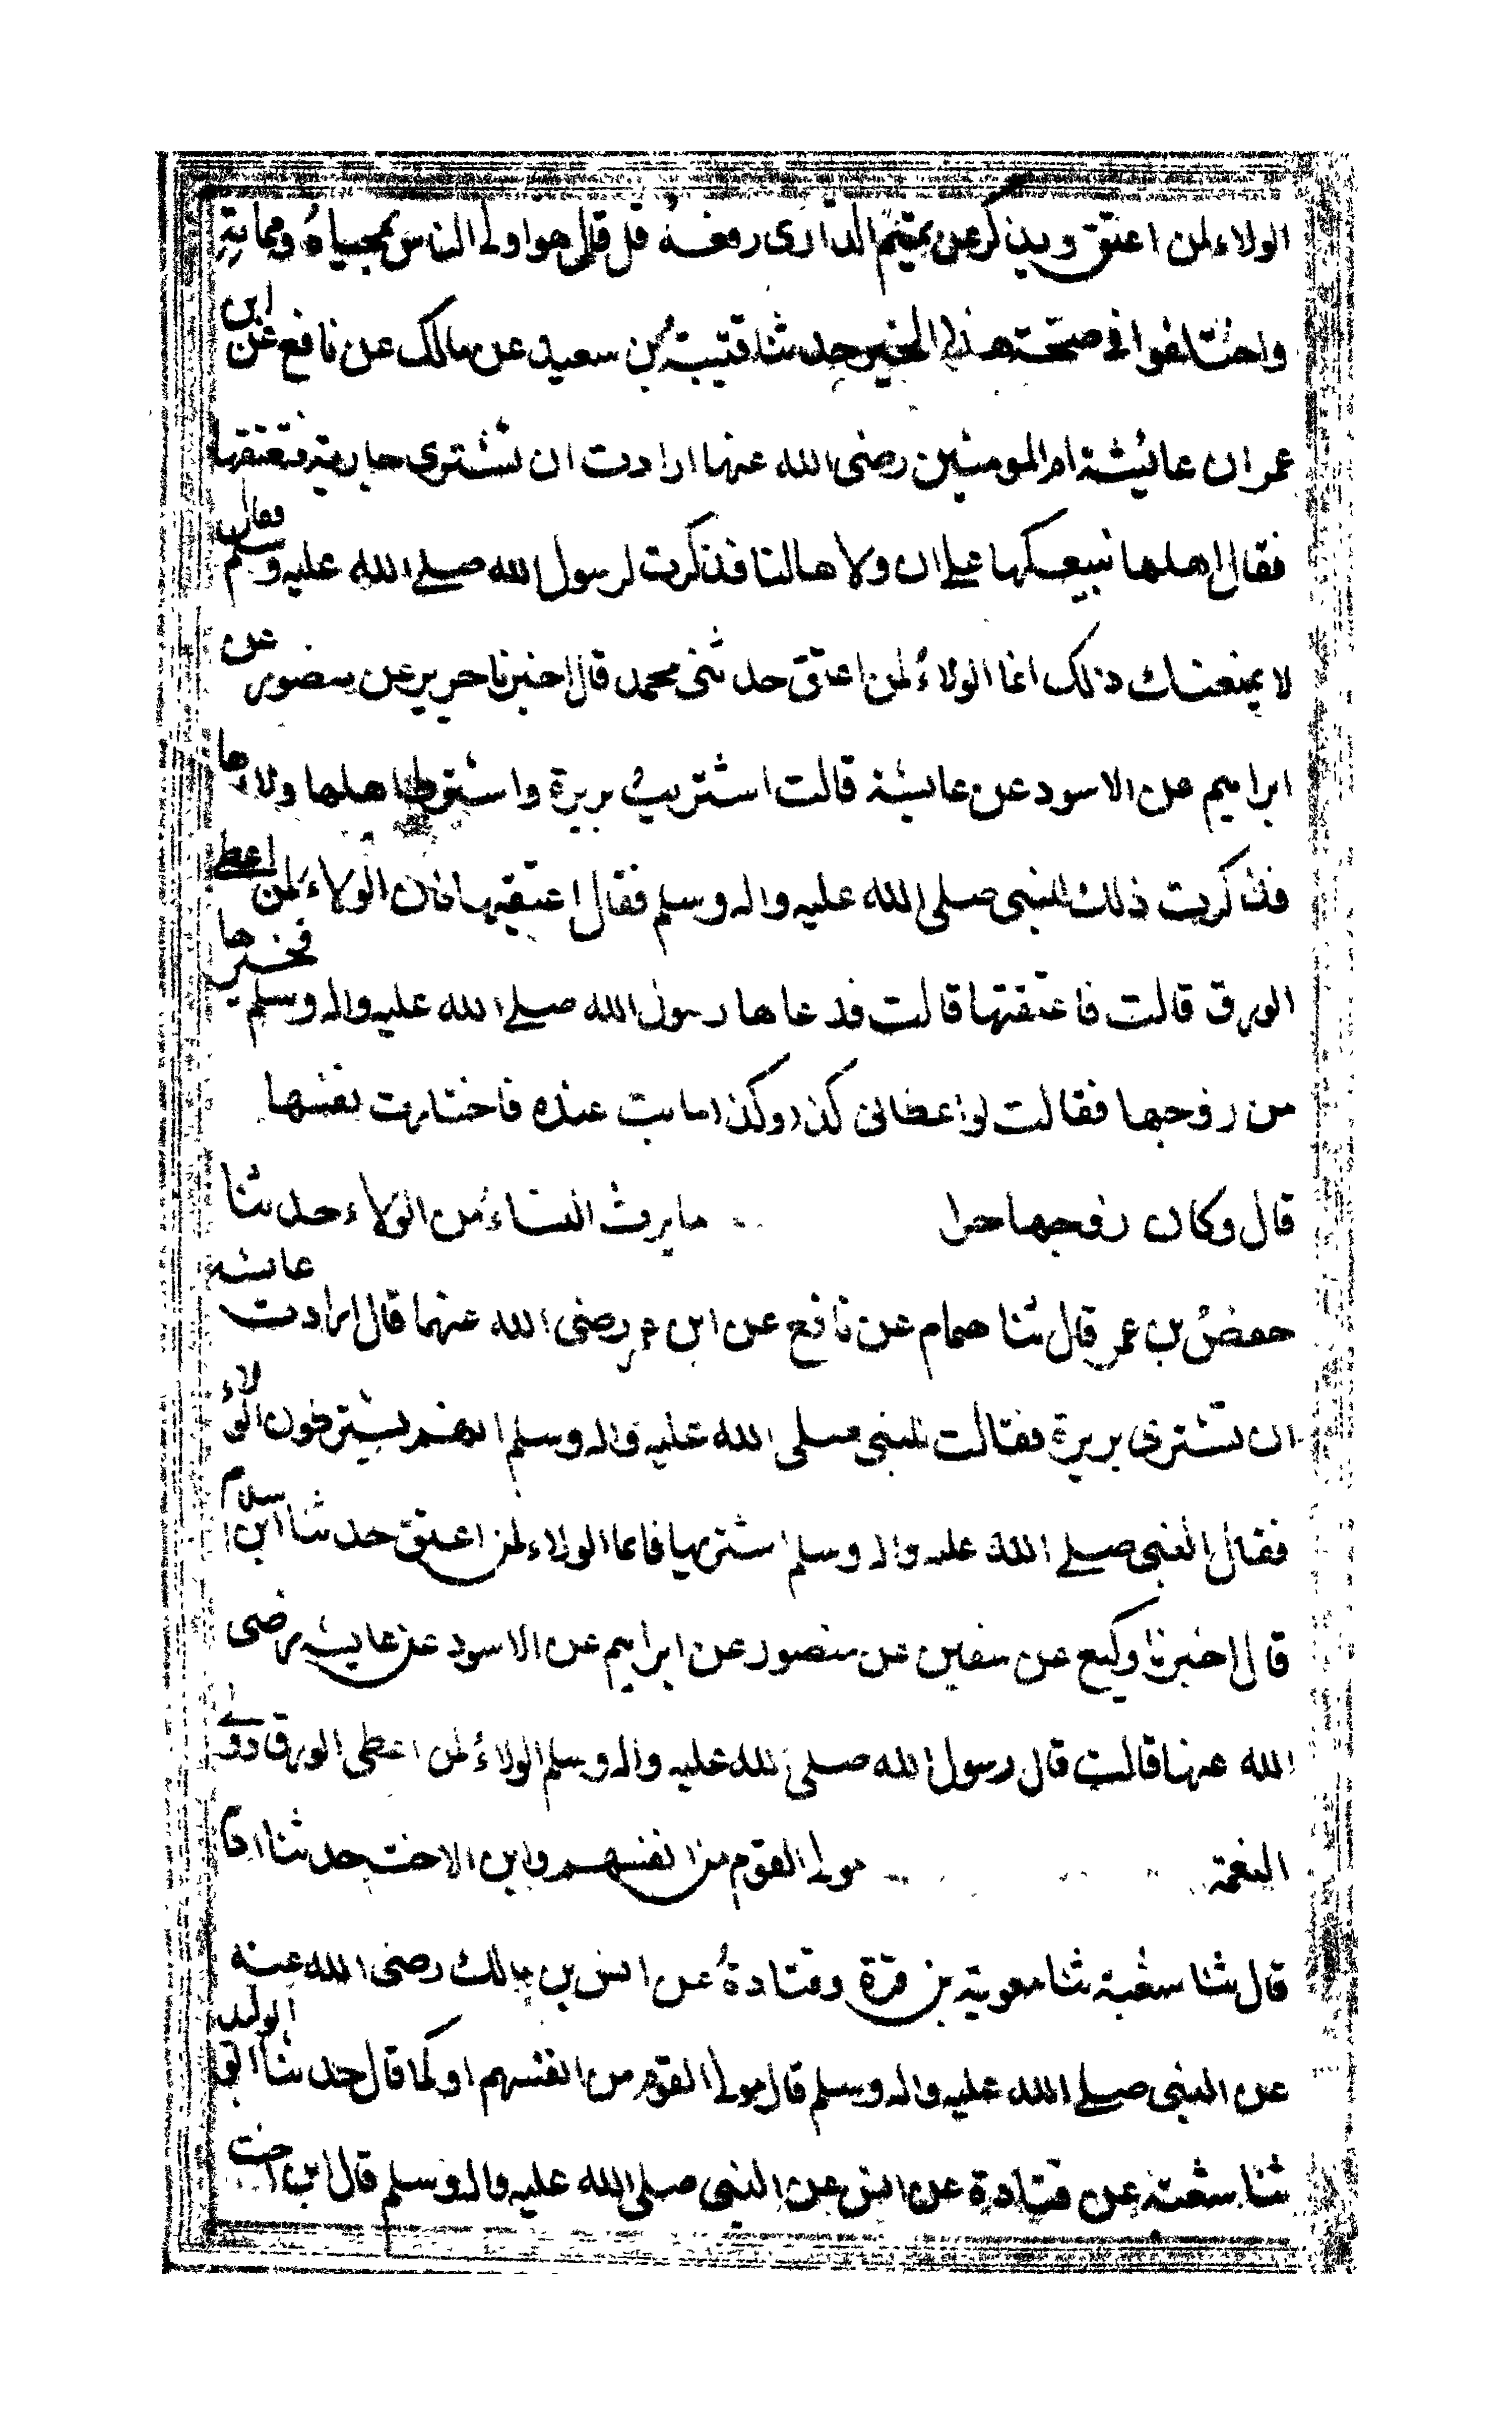 الولاء لمن اعتق ويذكر عن تميم الداري رفعه قل قال هو اولى الناس بمحياه ومماته
واختلفوا في صحة هذا الخبر حدثنا قتيبة بن سعيد عن مالك عن نافع عن ابن
عمر ان عائشة ام المومنين رضى الله عنها ارادت ان تشتري جارية فتعتقها
فقال اهلها نبيعكها على ان ولاها لنا فذكرت لرسول الله صلى الله عليه وسلم فقال
لا يمنعنك ذلك انما الولاء لمن اعتق حدثنى محمد قال اخبرنا جرير عن منصور عن
ابراهيم عن الاسود عن عائشة قالت اشتريت بريرة واشترط اهلها ولاءها
فذكرت ذلك للنبى صلى الله عليه واله وسلم فقال اعتقيها فان الولاء لمن اعطى
الورق قالت فاعتقتها قالت فدعاها رسول الله صلى الله عليه واله وسلم فخيرها
من زوجها فقالت لو اعطانى كذا وكذا ما بت عنده فاختارت نفسها
قال وكان زوجها حرا ما يرث النساء من الولاء حدثنا
حفص بن عمر قال ثنا همام عن نافع عن ابن عمر رضى الله عنهما قال ارادت عائشه
ان تشترى بريرة فقالت للنبى صلى الله عليه واله وسلم انهم يشترطون الولاء
فقال النبى صلى الله عليه واله وسلم اشتريها فانما الولاء لمن اعتق حدثنا ابن سلام
قال اخبرنا وكيع عن سفين عن منصور عن ابراهيم عن الاسود عن عايشه رضى
الله عنها قالت قال رسول الله صلى الله عليه واله وسلم الولاء لمن اعطى الورق وولى
النعمة مولى القوم من انفسهم وابن الاخت حدثنا ادم
قال ثنا شعبة ثنا معوية بن قرة وقتادة عن انس بن مالك رضى الله عنه
عن النبى صلى الله عليه واله وسلم قال مولى القوم من انفسهم او كما قال حدثنا ابو الوليد
ثنا شعبة عن قتادة عن انس عن النبى صلى الله عليه واله وسلم قال ابن اخت